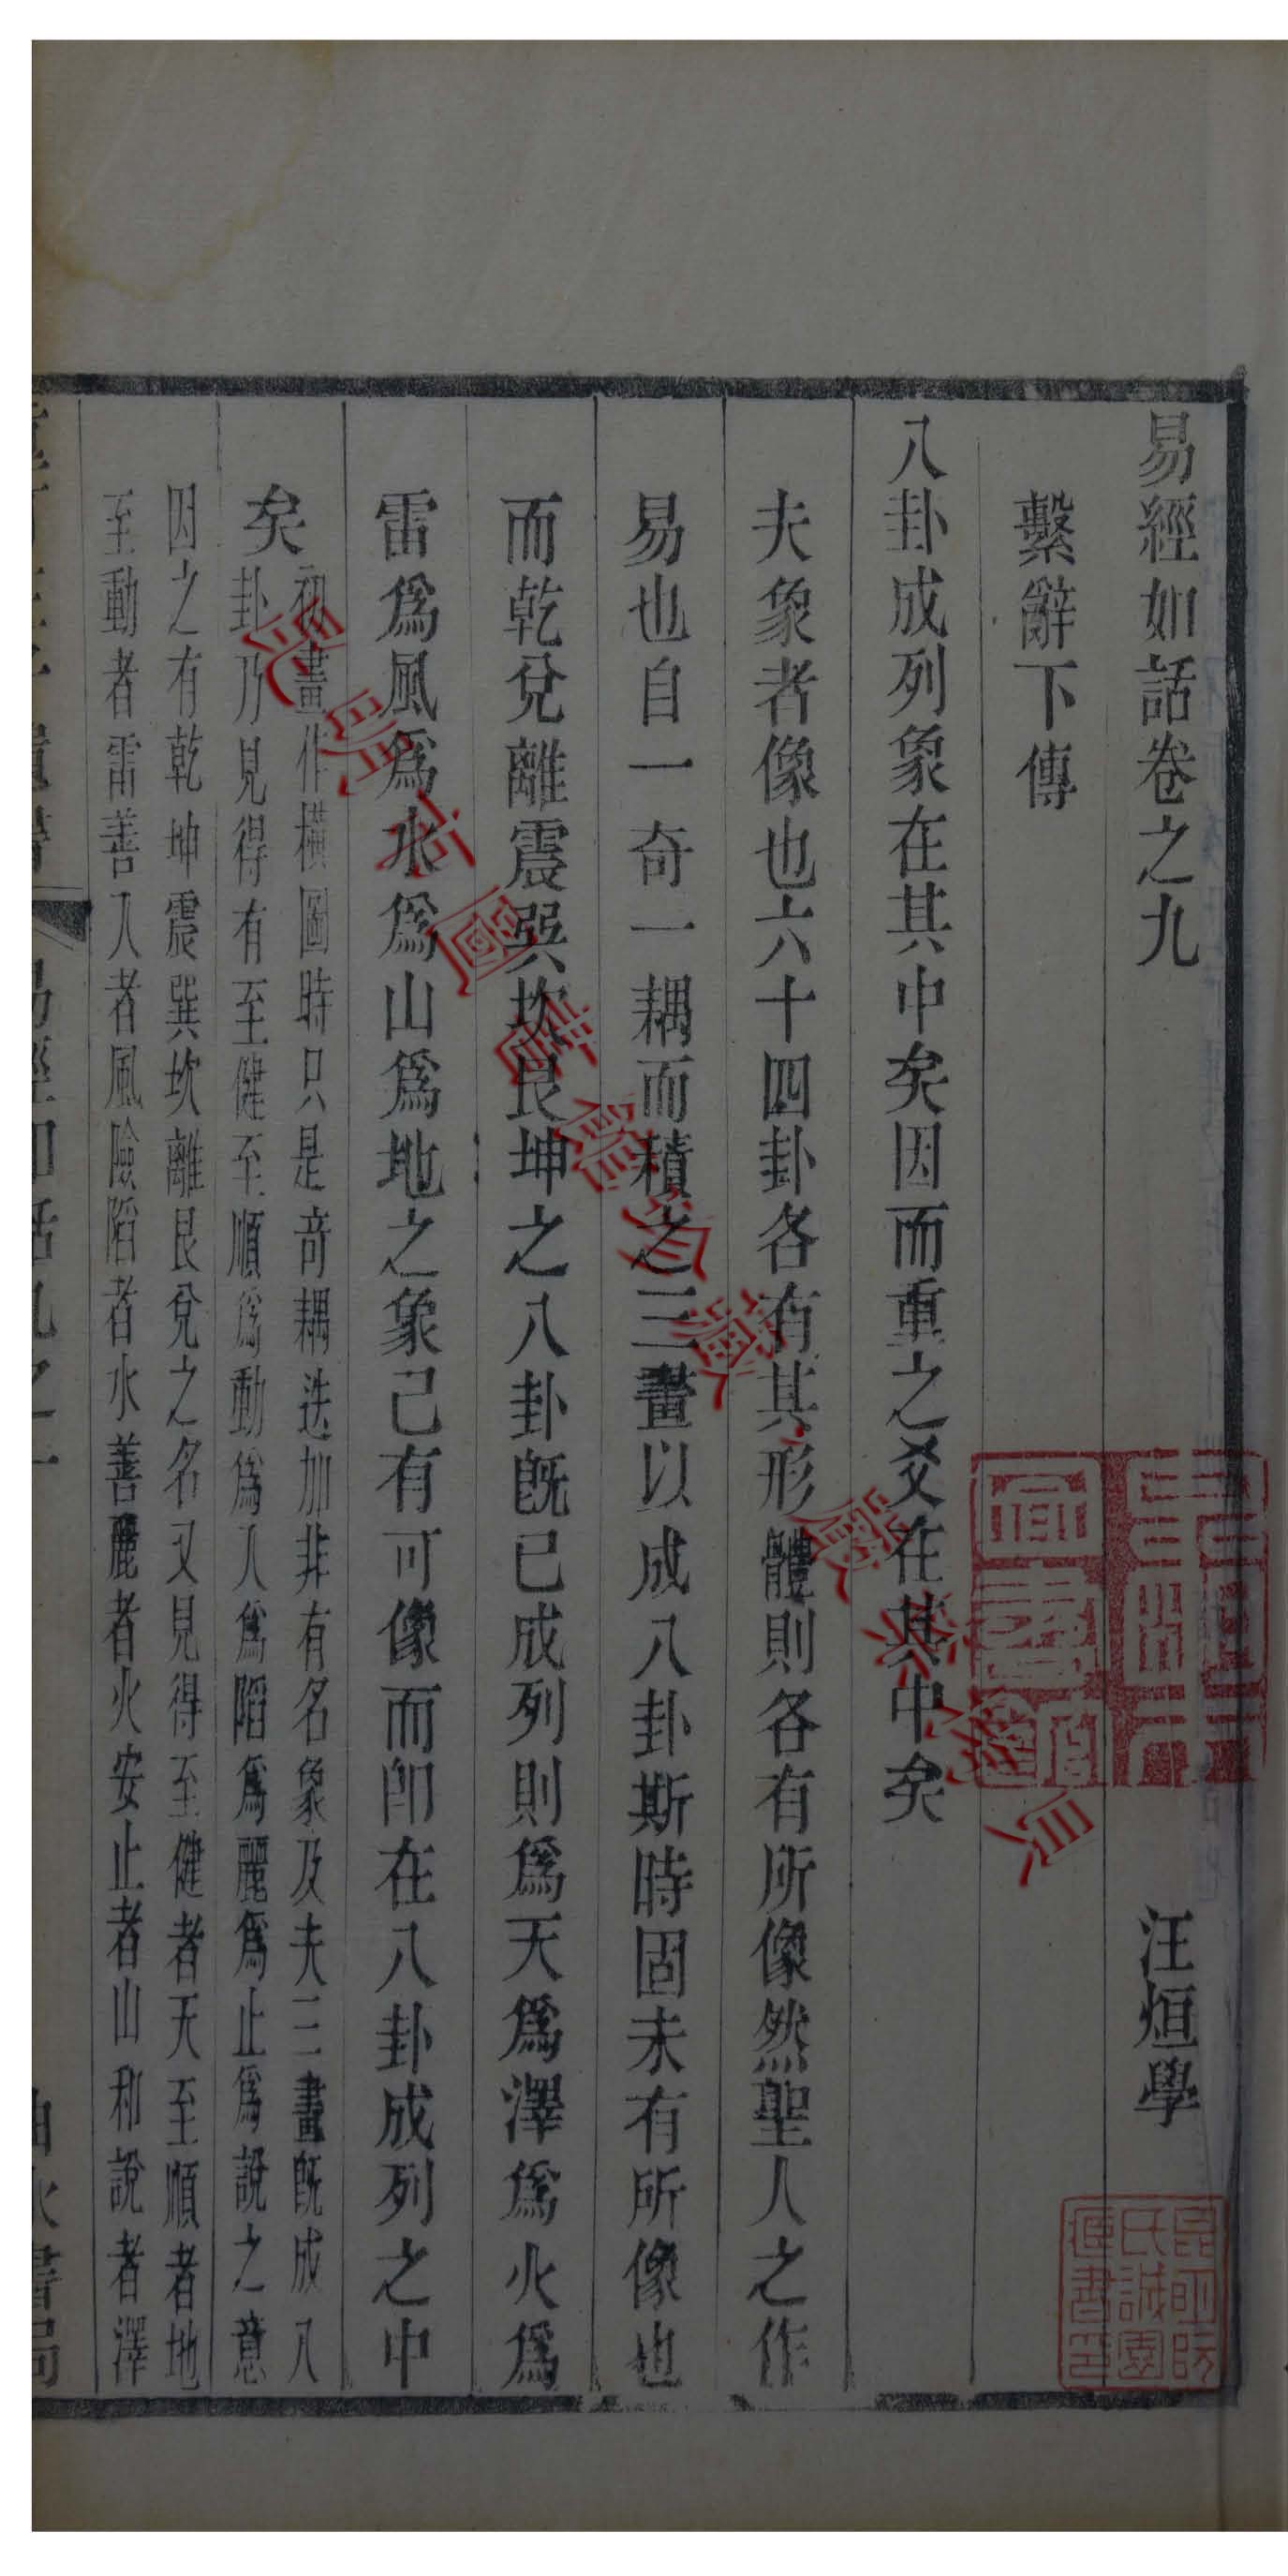 易經如話卷之九　汪烜學
繫辭下傳
八卦成列象在其中矣因而重之爻在其中矣
夫象者像也六十四卦各有其形體則各有所像然聖人之作
易也自一奇一耦而積之三畫以成八卦斯時固未有所像也
而乾兌離震巽坎艮坤之八卦旣已成列則爲天爲澤爲火爲
雷爲風爲水爲山爲地之象己有可像而卽在八卦成列之中
矣
初畫作橫圖時只是奇耦迭加非有名象及夫三畫旣成八
卦乃見得有至健至順爲動爲入爲陷爲麗爲止爲說之意
因之有乾坤震巽坎離艮兌之名又見得至健者天至順者地
至動者雷善入者風險陷者水善麗者火安止者山和說者澤
昆明市圖書館
昆明阮氏誠園匧書印
昆明市圖書館珍藏